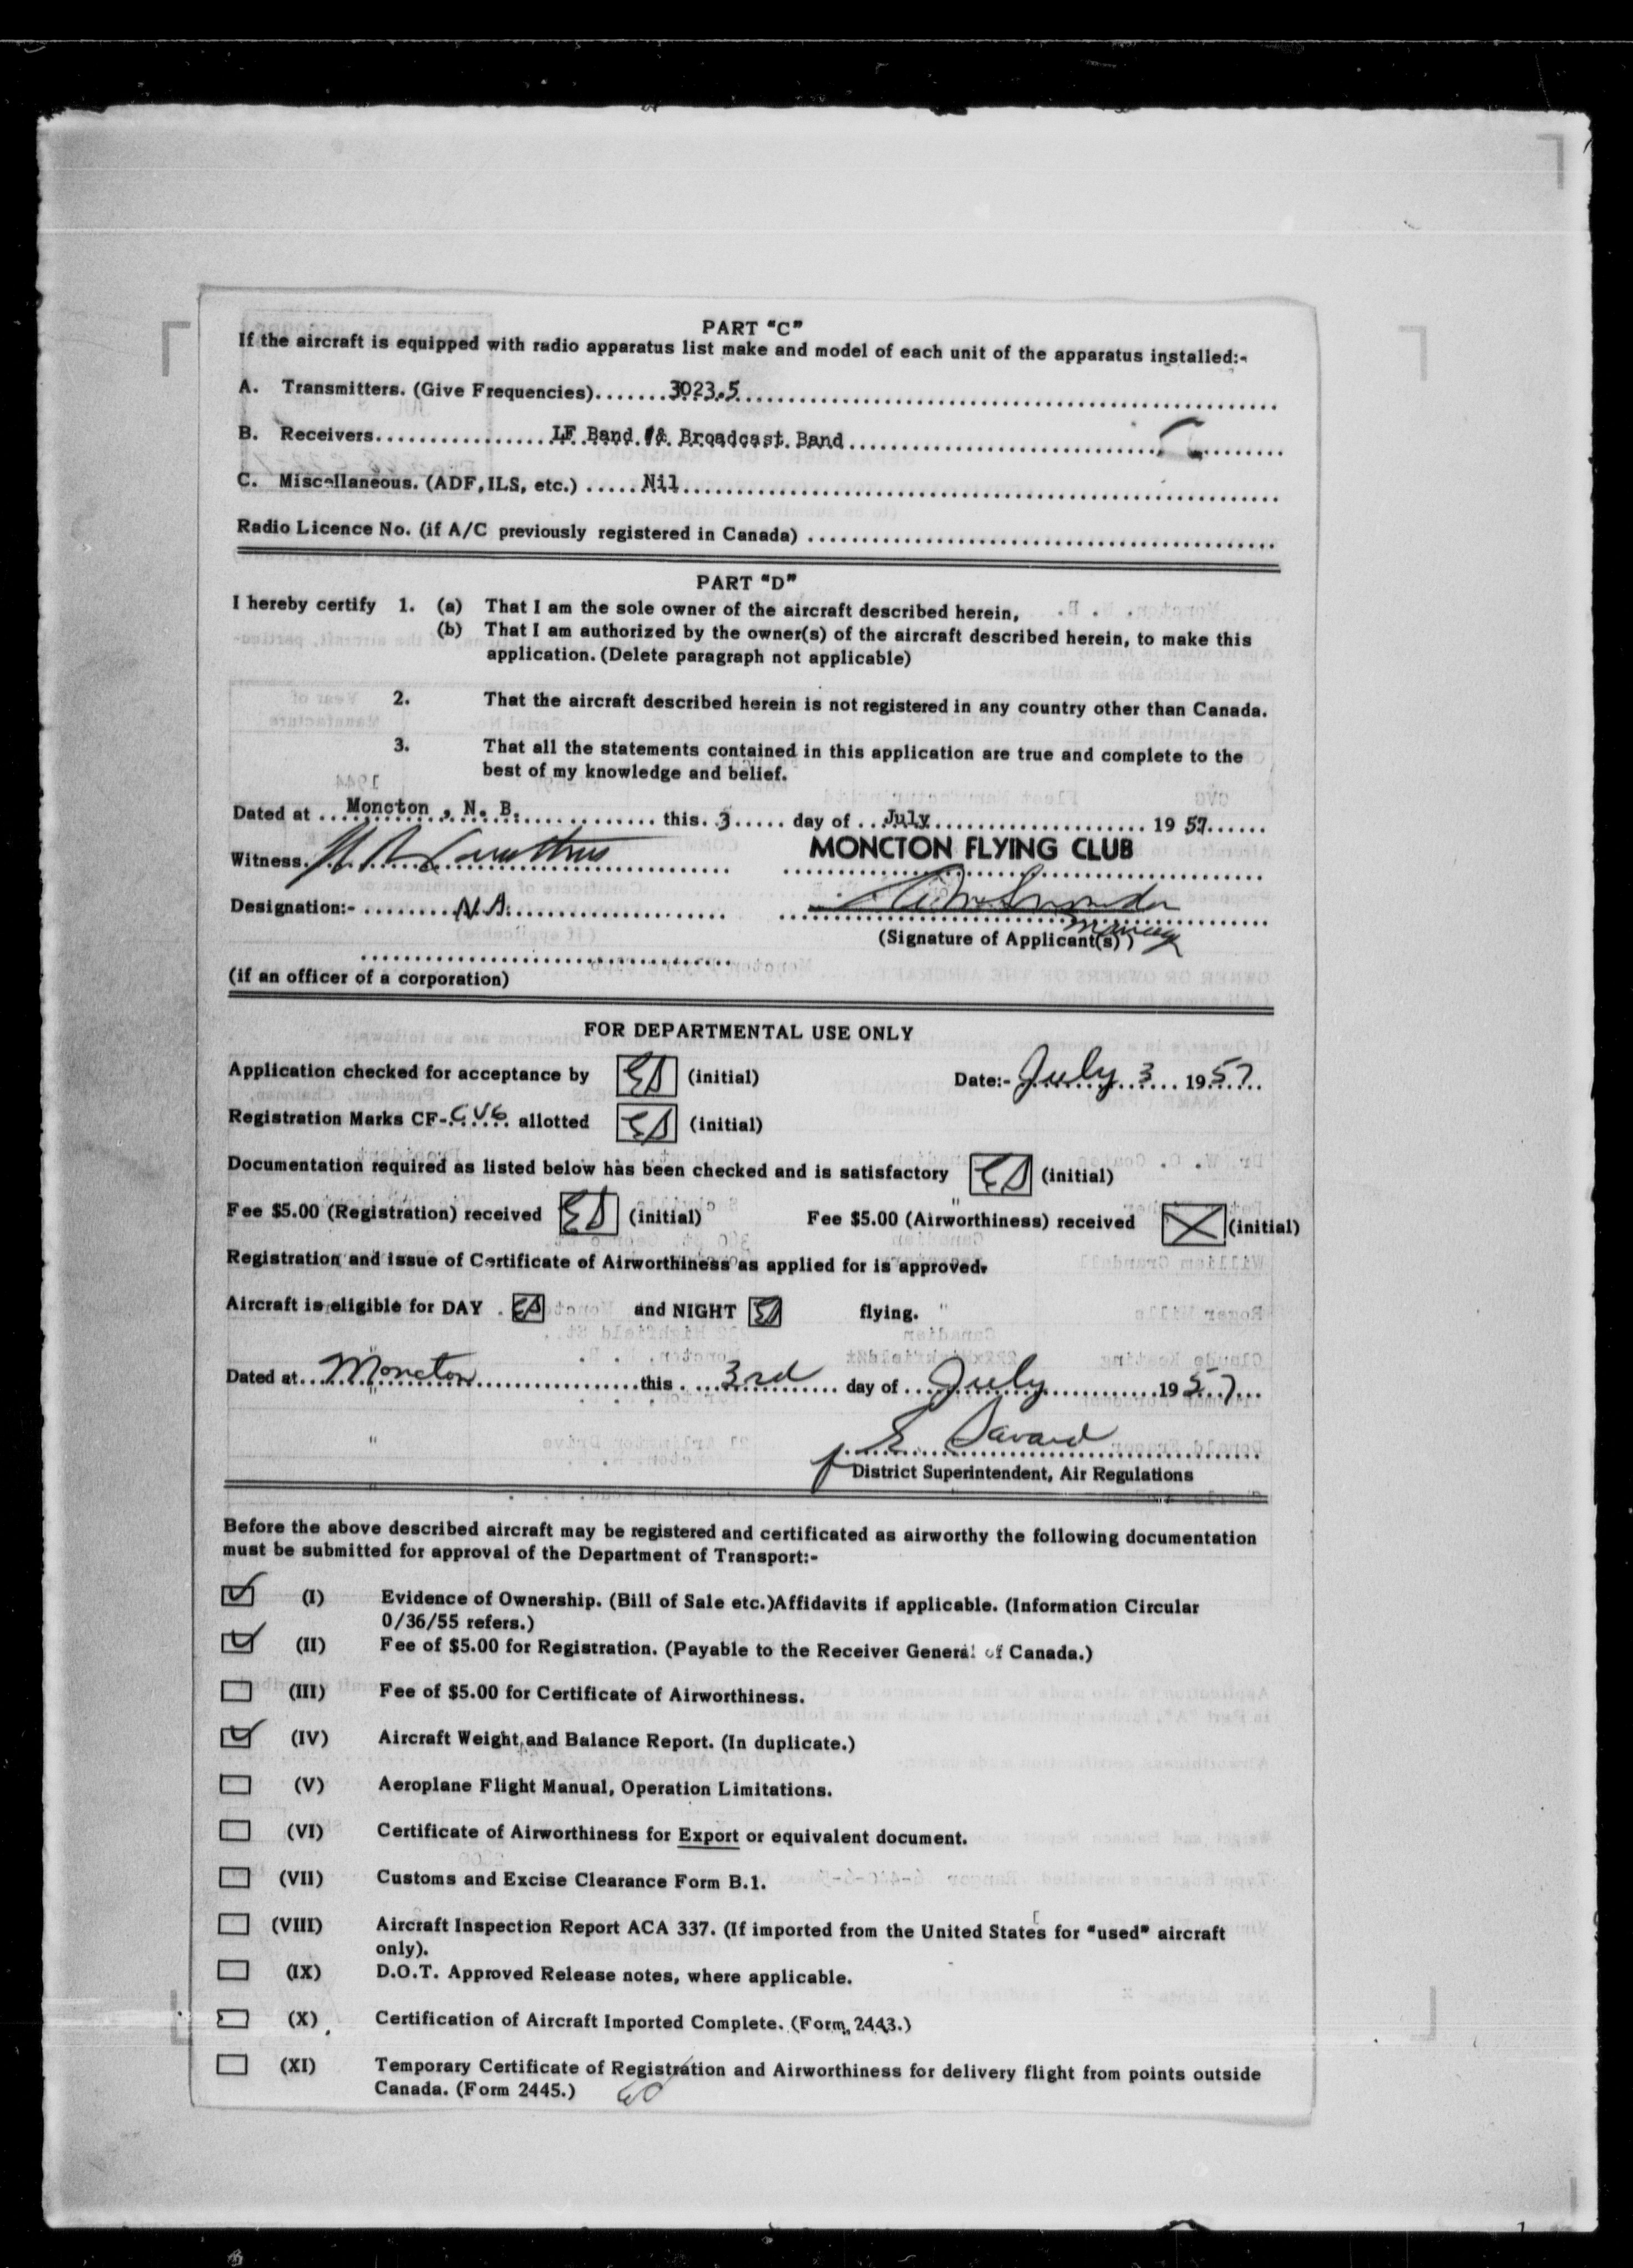 PART "C"
If the aircraft is equipped with radio apparatus list make and model of each unit of the apparatus installed:-
A. Transmitters. (Give Frequencies).......3023.5
B. Receivers.................LF Band & Broadcast Band
C. Miscellaneous. (ADF, ILS, etc.) .....Nil
Radio Licence No. (if A/C previously registered in Canada) ..........
PART "D"
I hereby certify 1. (a) That I am the sole owner of the aircraft described herein,
(b) That I am authorized by the owner(s) of the aircraft described herein, to make this
application. (Delete paragraph not applicable)
2. That the aircraft described herein is not registered in any country other than Canada.
3. That all the statements contained in this application are true and complete to the
best of my knowledge and belief.
Dated at ... Moncton , N. B. ........ this. 3 ..... day of ... July .......... 19 57......
MONCTON FLYING CLUB
Witness.
Designation:- .........N.A.
(Signature of Applicant(s) )
(if an officer of a corporation)
FOR DEPARTMENTAL USE ONLY
Application checked for acceptance by ES (initial) Date:- July 3 1957
Registration Marks CF-CVG allotted ES (initial)
Documentation required as listed below has been checked and is satisfactory ES (initial)
Fee $5.00 (Registration) received ES (initial) Fee $5.00 (Airworthiness) received X (initial)
Registration and issue of Certificate of Airworthiness as applied for is approved.
Aircraft is eligible for DAY ES and NIGHT ES flying.
Dated at Moncton this 3rd day of July 1957
E Savard
District Superintendent, Air Regulations
Before the above described aircraft may be registered and certificated as airworthy the following documentation
must be submitted for approval of the Department of Transport:-
(I) Evidence of Ownership. (Bill of Sale etc.)Affidavits if applicable. (Information Circular
0/36/55 refers.)
(II) Fee of $5.00 for Registration. (Payable to the Receiver General of Canada.)
(III) Fee of $5.00 for Certificate of Airworthiness.
(IV) Aircraft Weight and Balance Report. (In duplicate.)
(V) Aeroplane Flight Manual, Operation Limitations.
(VI) Certificate of Airworthiness for Export or equivalent document.
(VII) Customs and Excise Clearance Form B.1.
(VIII) Aircraft Inspection Report ACA 337. (If imported from the United States for "used" aircraft
only).
(IX) D.O.T. Approved Release notes, where applicable.
(X) Certification of Aircraft Imported Complete. (Form 2443.)
(XI) Temporary Certificate of Registration and Airworthiness for delivery flight from points outside
Canada. (Form 2445.)